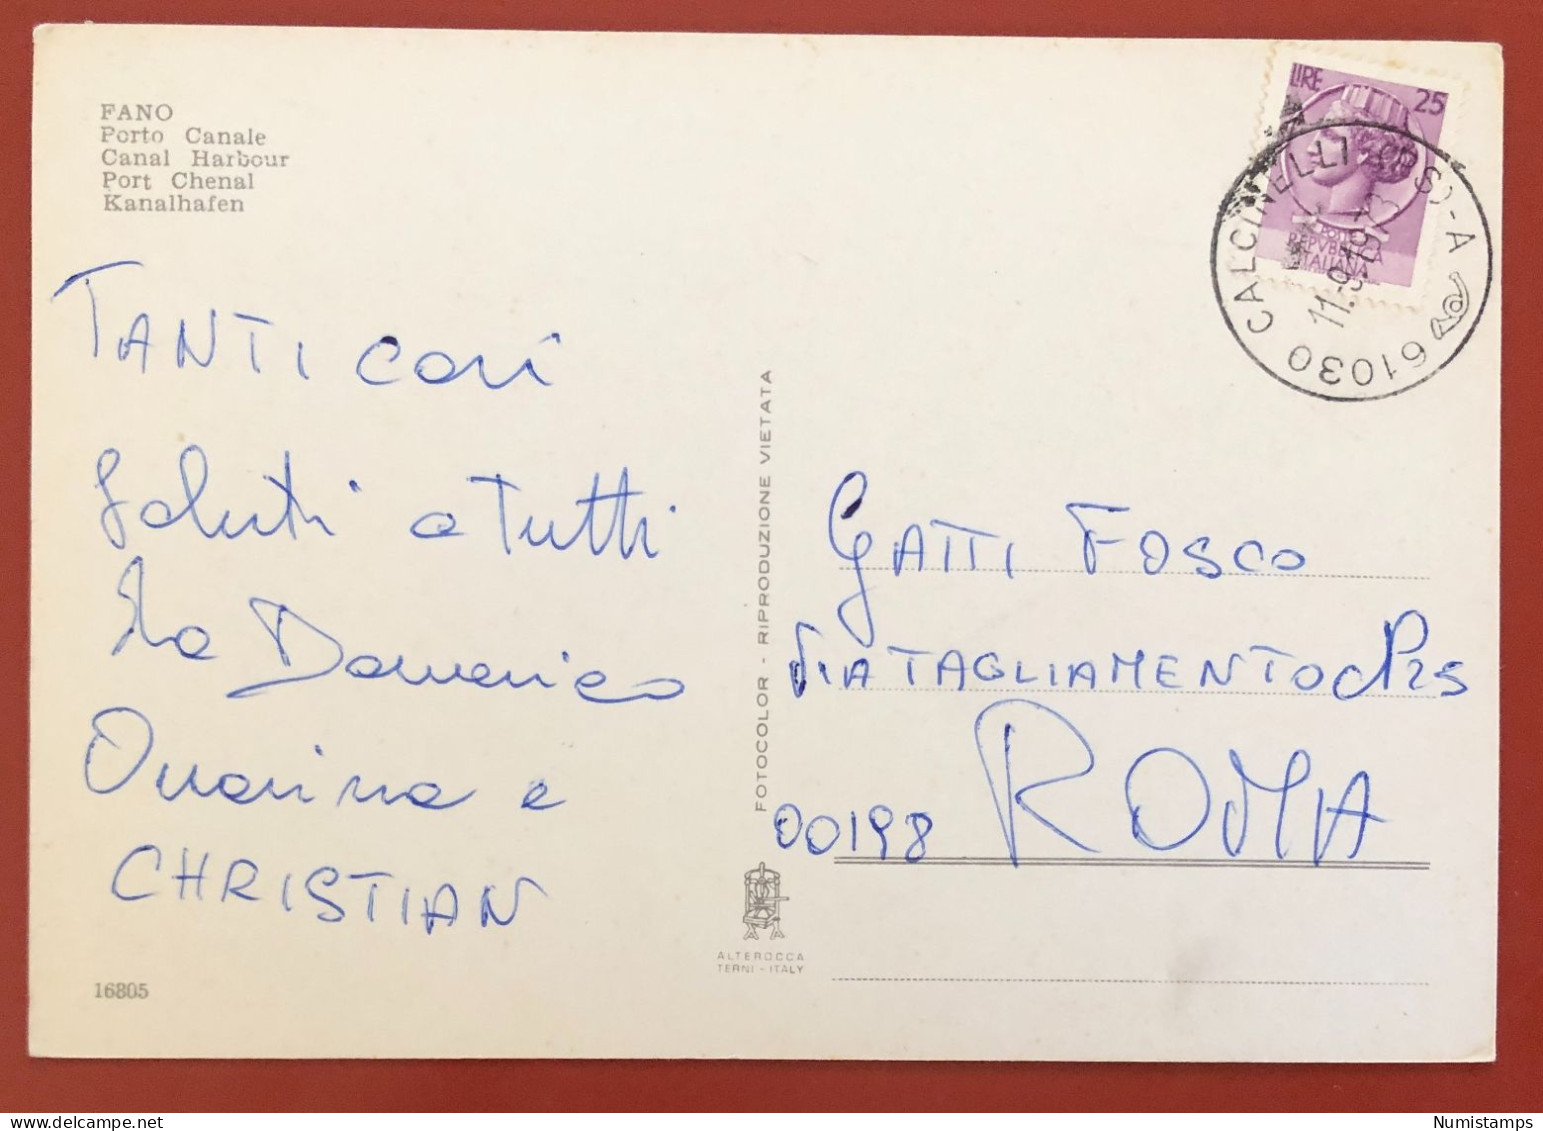 FANO
Porto Canale
Canal Harbour
Port Chenal
Kanalhafen
TANTI cari
saluti a Tutti
Domenico
e
CHRISTIAN
16805
FOTOCOLOR - RIPRODUZIONE VIETATA
ALTEROCCA
TERNI - ITALY
LIRE 25
REPVBBLICA
ITALIANA
61030 CALCINELLI (PS) - A
11.9.1973
GATTI FOSCO
VIA TAGLIAMENTO N° 25
00198 ROMA
Numistamps